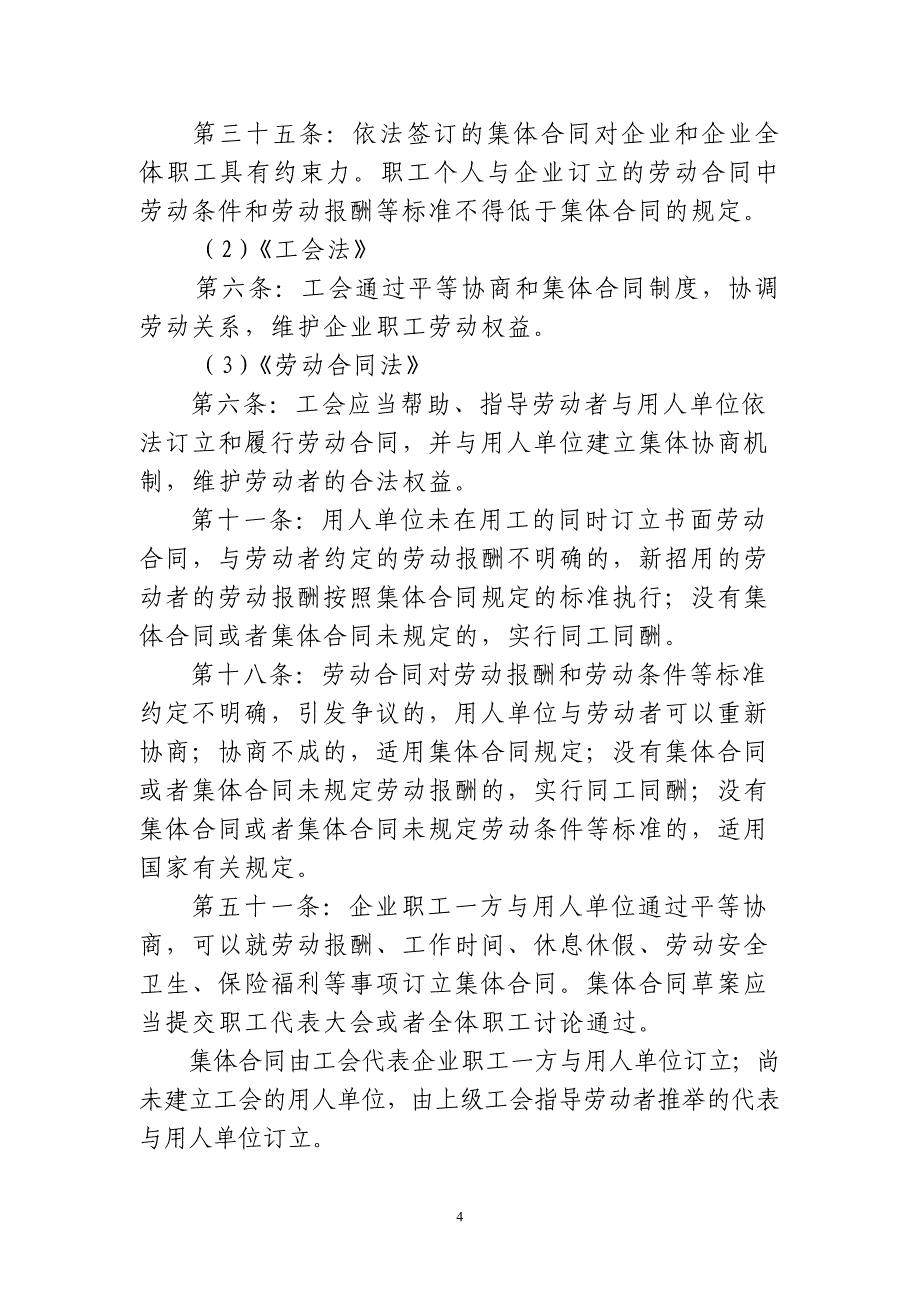 第三十五条：依法签订的集体合同对企业和企业全
体职工具有约束力。职工个人与企业订立的劳动合同中
劳动条件和劳动报酬等标准不得低于集体合同的规定。
（2）《工会法》
第六条：工会通过平等协商和集体合同制度，协调
劳动关系，维护企业职工劳动权益。
（3）《劳动合同法》
第六条：工会应当帮助、指导劳动者与用人单位依
法订立和履行劳动合同，并与用人单位建立集体协商机
制，维护劳动者的合法权益。
第十一条：用人单位未在用工的同时订立书面劳动
合同，与劳动者约定的劳动报酬不明确的，新招用的劳
动者的劳动报酬按照集体合同规定的标准执行；没有集
体合同或者集体合同未规定的，实行同工同酬。
第十八条：劳动合同对劳动报酬和劳动条件等标准
约定不明确，引发争议的，用人单位与劳动者可以重新
协商；协商不成的，适用集体合同规定；没有集体合同
或者集体合同未规定劳动报酬的，实行同工同酬；没有
集体合同或者集体合同未规定劳动条件等标准的，适用
国家有关规定。
第五十一条：企业职工一方与用人单位通过平等协
商，可以就劳动报酬、工作时间、休息休假、劳动安全
卫生、保险福利等事项订立集体合同。集体合同草案应
当提交职工代表大会或者全体职工讨论通过。
集体合同由工会代表企业职工一方与用人单位订立；尚
未建立工会的用人单位，由上级工会指导劳动者推举的代表
与用人单位订立。
4